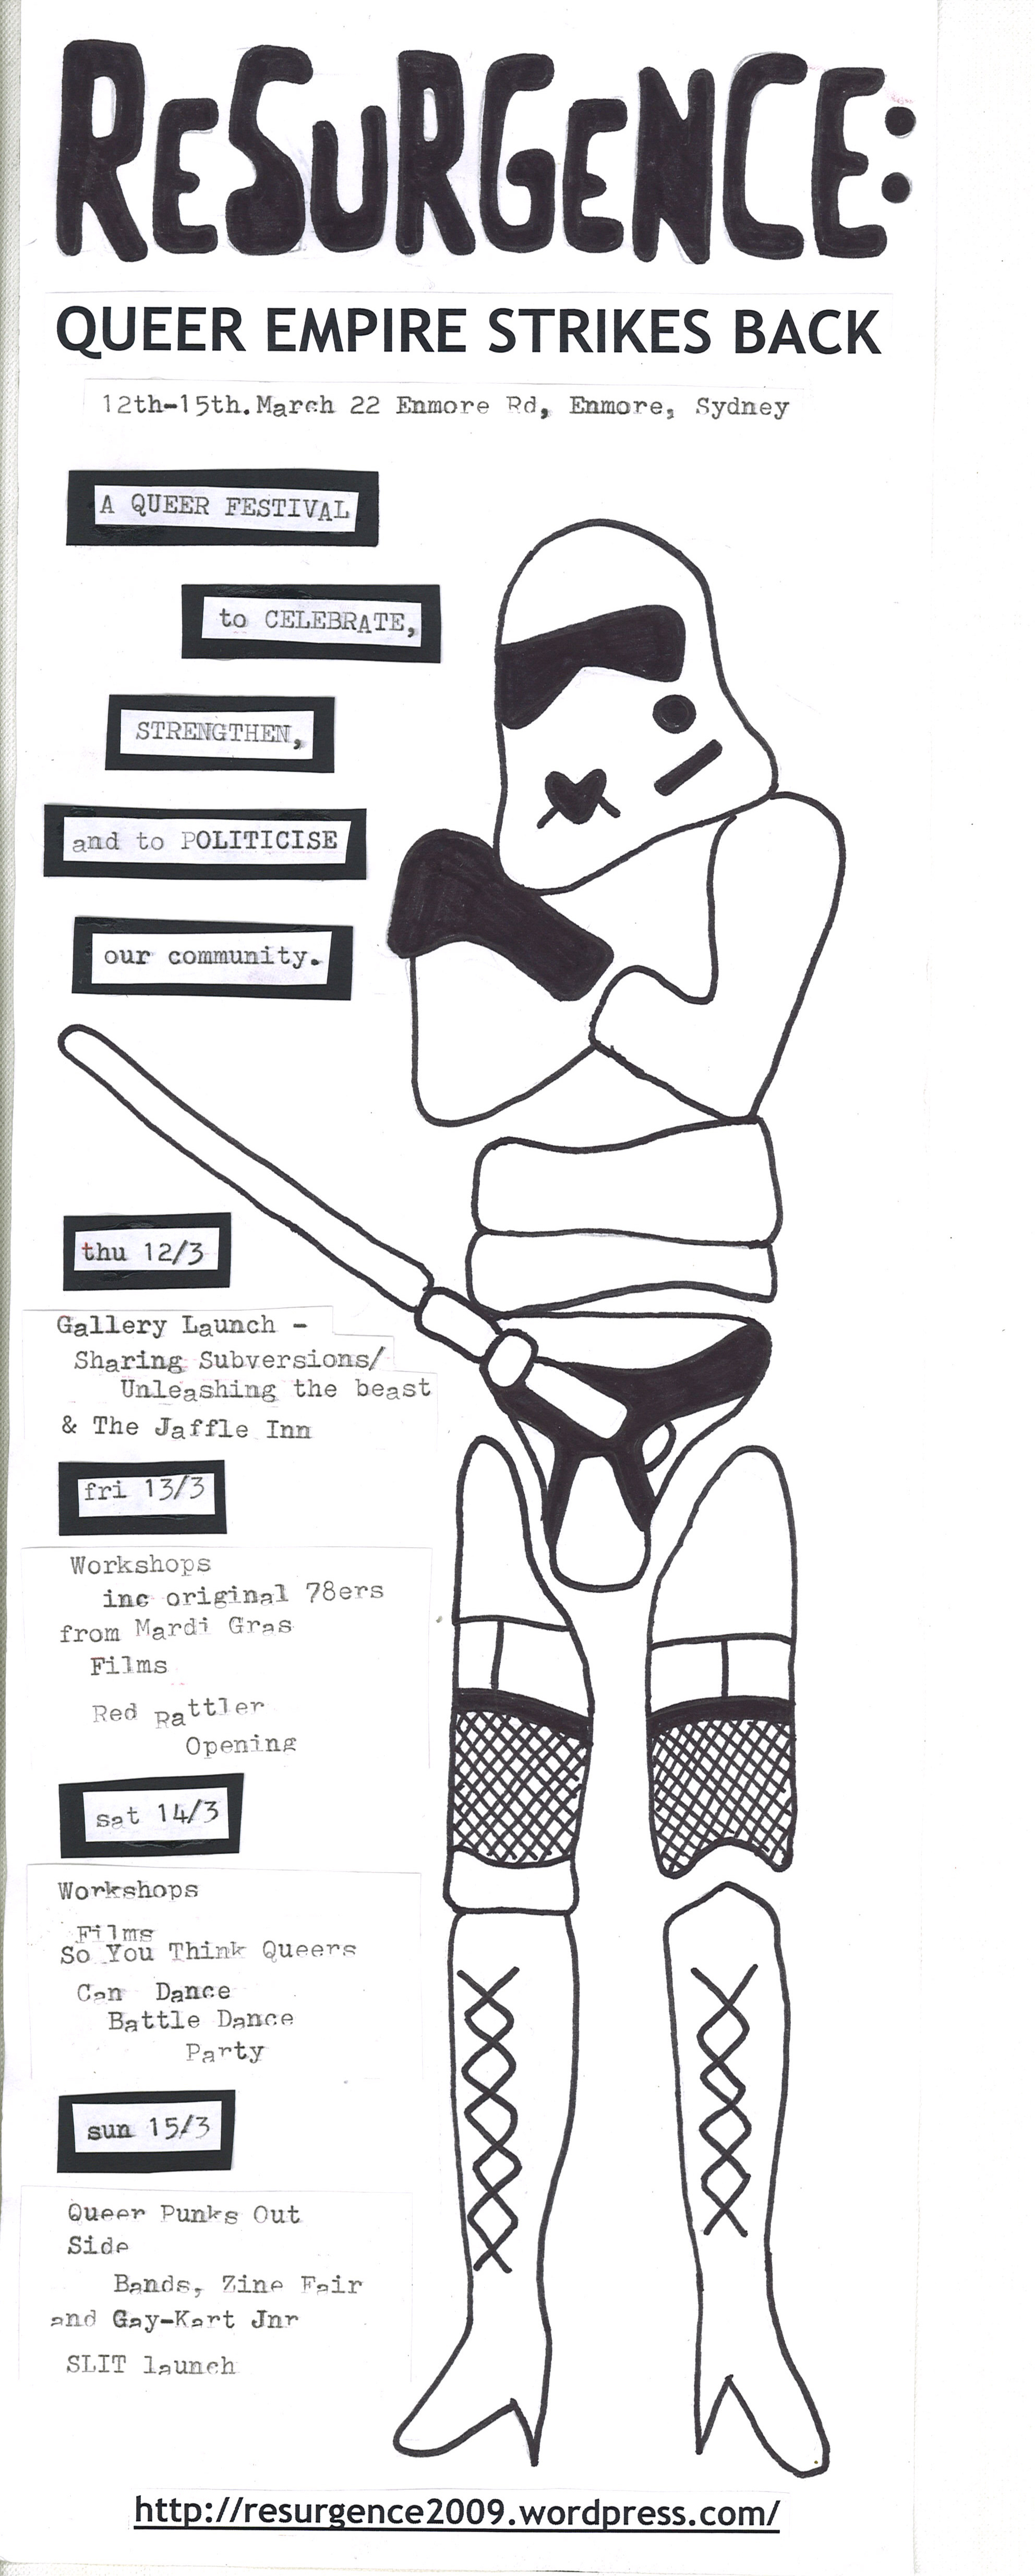 ReSuRGeNCE:
QUEER EMPIRE STRIKES BACK
12th-15th.March 22 Enmore Rd, Enmore, Sydney
A QUEER FESTIVAL
to CELEBRATE,
STRENGTHEN,
and to POLITICISE
our community.
thu 12/3
Gallery Launch -
Sharing Subversions/
Unleashing the beast
& The Jaffle Inn
fri 13/3
Workshops
inc original 78ers
from Mardi Gras
Films
Red Rattler
Opening
sat 14/3
Workshops
Films
So You Think Queers
Can Dance
Battle Dance
Party
sun 15/3
Queer Punks Out
Side
Bands, Zine Fair
and Gay-Kart Jnr
SLIT launch
http://resurgence2009.wordpress.com/